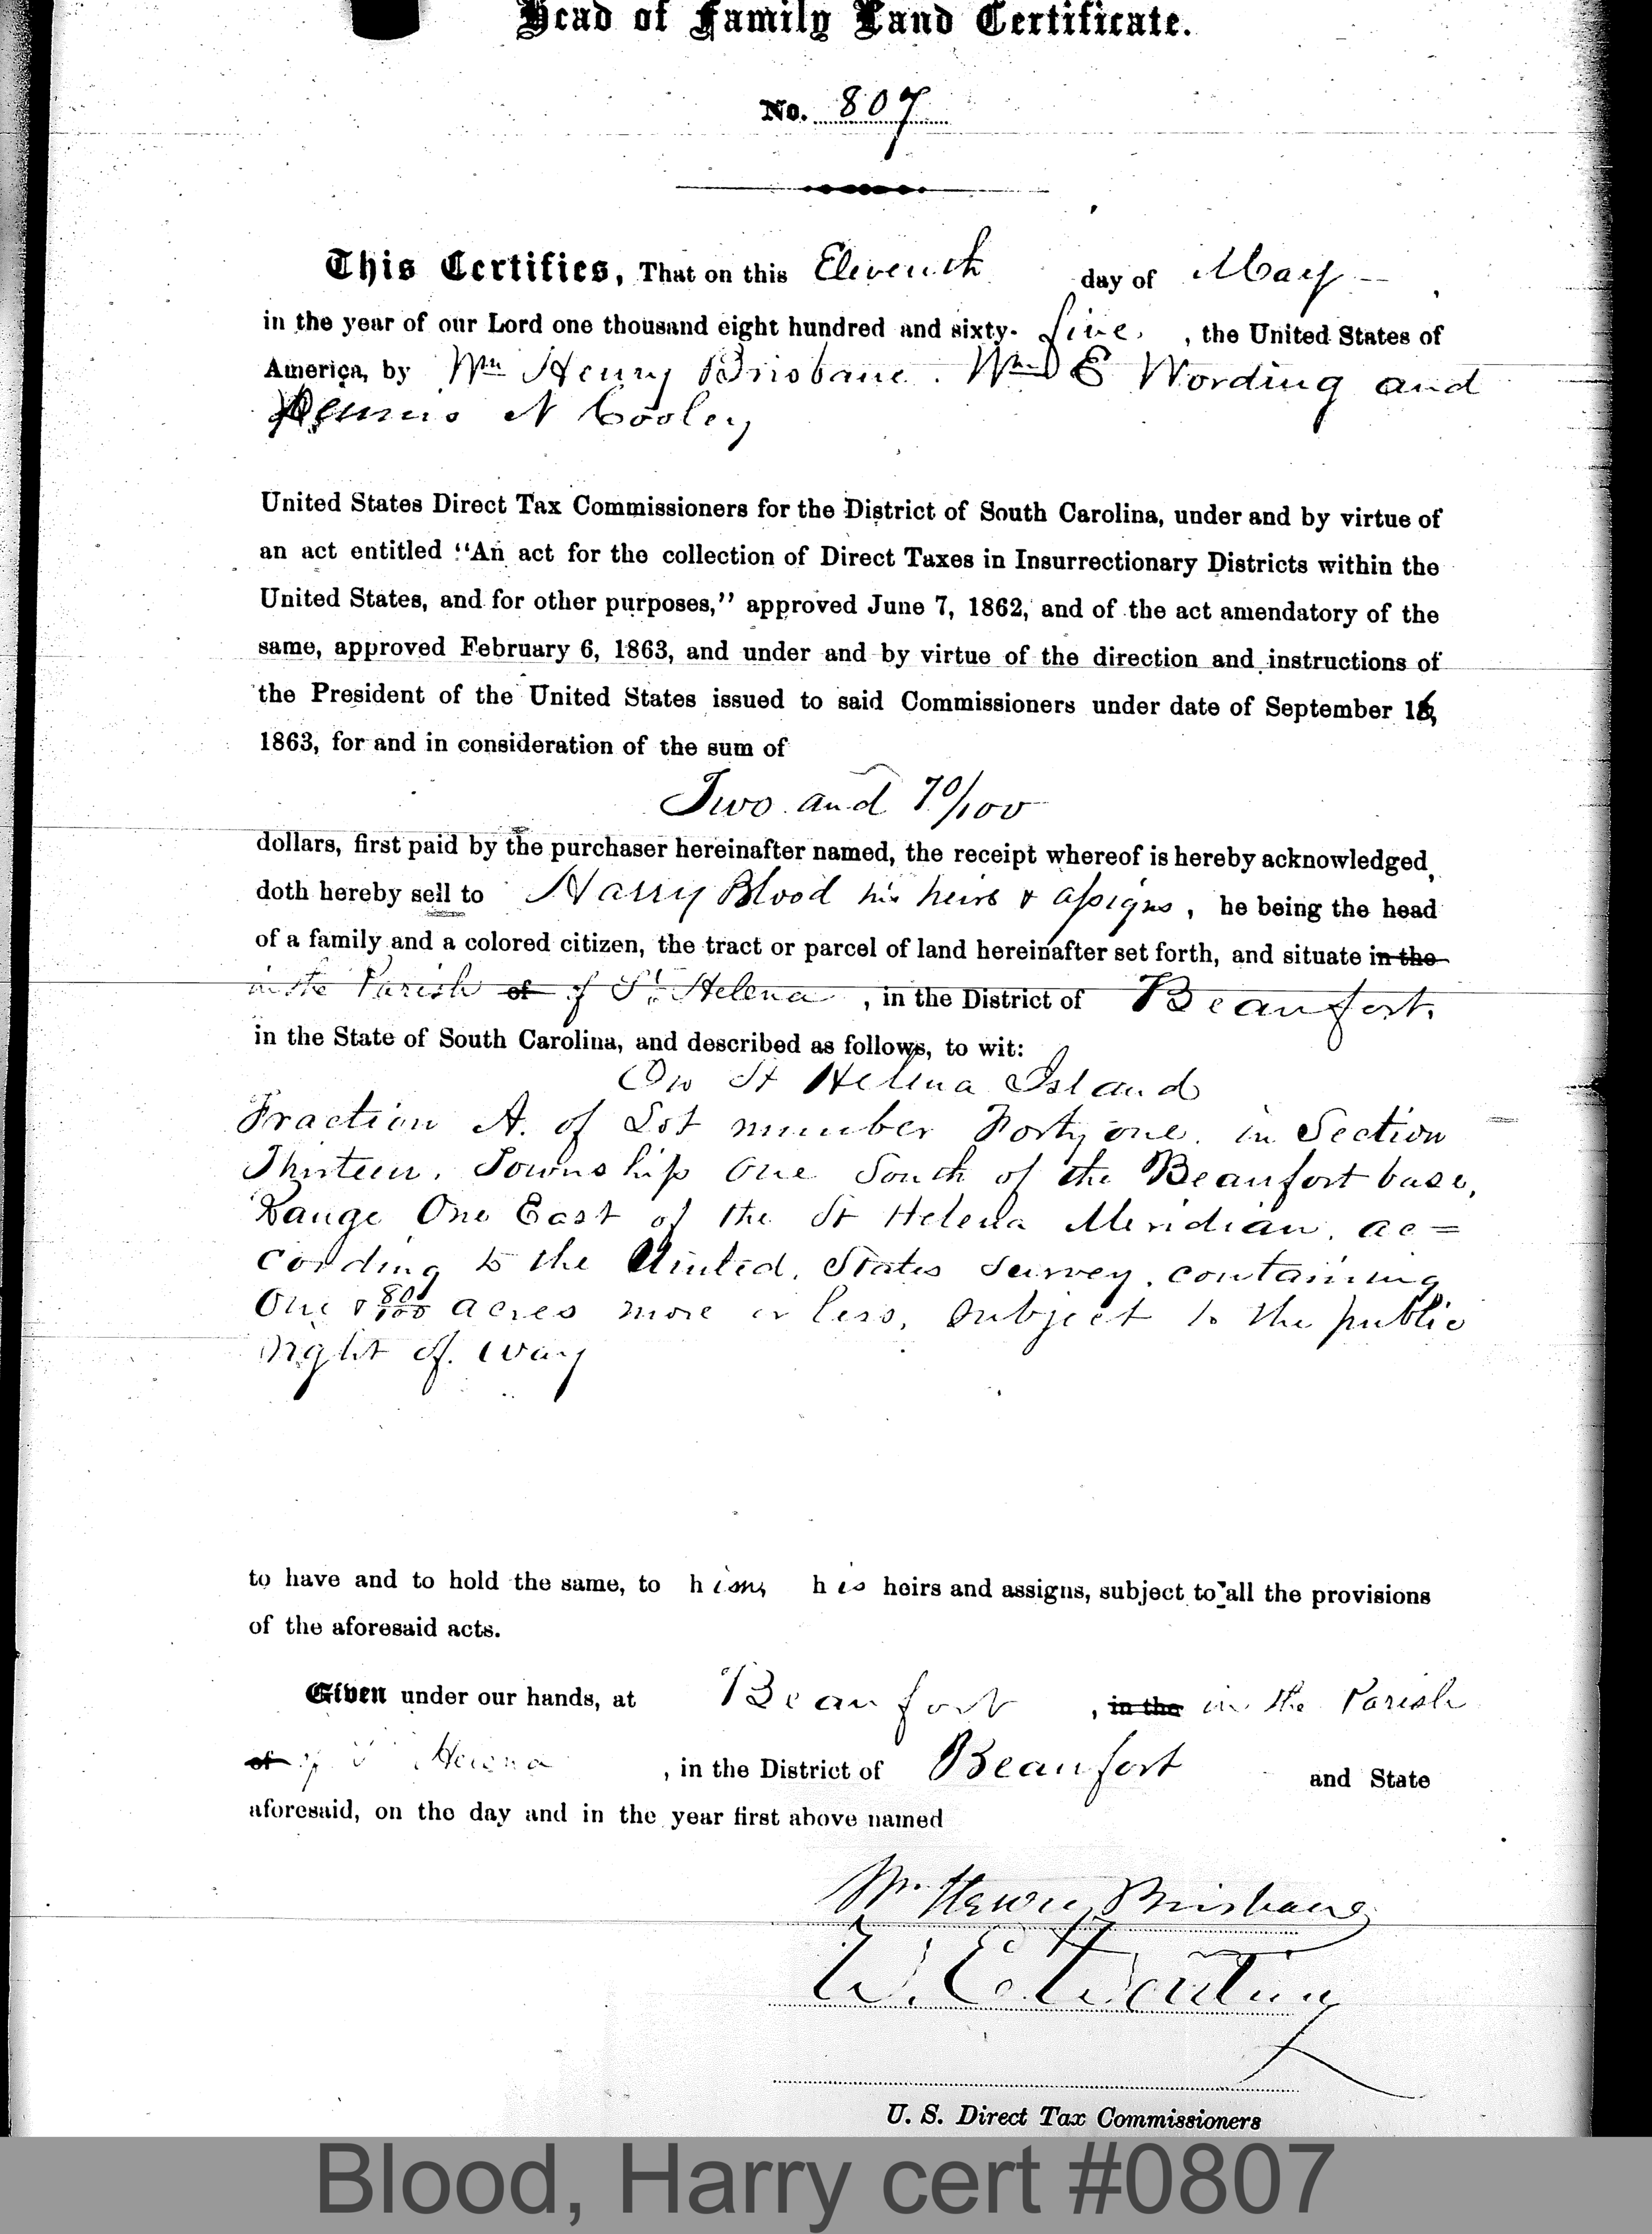 Head of Family Land Certificate.
No. 807
This Certifies, That on this Eleventh day of May
in the year of our Lord one thousand eight hundred and sixty-five, the United States of
America, by Wm Henry Brisbane. Wm E Wording and
Dennis N Cooley
United States Direct Tax Commissioners for the District of South Carolina, under and by virtue of
an act entitled "An act for the collection of Direct Taxes in Insurrectionary Districts within the
United States, and for other purposes," approved June 7, 1862, and of the act amendatory of the
same, approved February 6, 1863, and under and by virtue of the direction and instructions of
the President of the United States issued to said Commissioners under date of September 16,
1863, for and in consideration of the sum of
Two and 70/100
dollars, first paid by the purchaser hereinafter named, the receipt whereof is hereby acknowledged,
doth hereby sell to Harry Blood his heirs & assigns, he being the head
of a family and a colored citizen, the tract or parcel of land hereinafter set forth, and situate in the
in the Parish of of St. Helena, in the District of Beaufort.
in the State of South Carolina, and described as follows, to wit:
On St Helena Island
Fraction A. of Lot number Forty one. in Section
Thirteen. Township One South of the Beaufort base,
Range One East of the St Helena Meridian, ac=
cording to the United States survey. containing
One & 80/100 acres more or less, subject to the public
right of way
to have and to hold the same, to him, his heirs and assigns, subject to all the provisions
of the aforesaid acts.
Given under our hands, at Beaufort, in the in the Parish
of of St Helena, in the District of Beaufort and State
aforesaid, on the day and in the year first above named
Wm. Henry Brisbane
W. E. Wording
U. S. Direct Tax Commissioners
Blood, Harry cert #0807